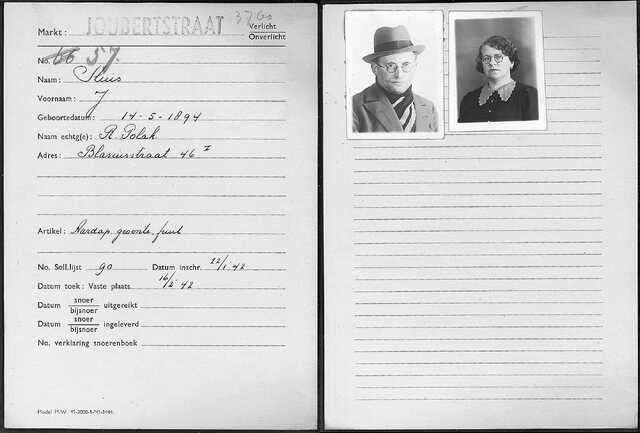 Markt: JOUBERTSTRAAT 3760 Verlicht
Onverlicht
No. 66 57
Naam: Sluis
Voornaam: J
Geboortedatum: 14-5-1894
Naam echtg(e): R. Polak
Adres: Blasiusstraat 46 I
Artikel: Aardap. groente, fruit
No. Soll.lijst 90 Datum inschr. 22/1 42
Datum toek: Vaste plaats 16/2 42
Datum snoer
bijsnoer uitgereikt
Datum snoer
bijsnoer ingeleverd
No. verklaring snoerenboek
Model M.W.